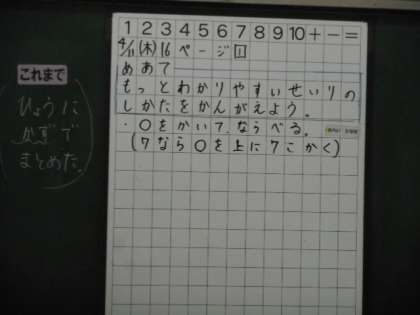 これまで
ひょうに
かずで
まとめた。
1 2 3 4 5 6 7 8 9 10 + - =
4/11(木)16ページ1
めあて
もっとわかりやすいせいりの
しかたをかんがえよう。
・〇をかいて、ならべる。
(7なら〇を上に7こかく)